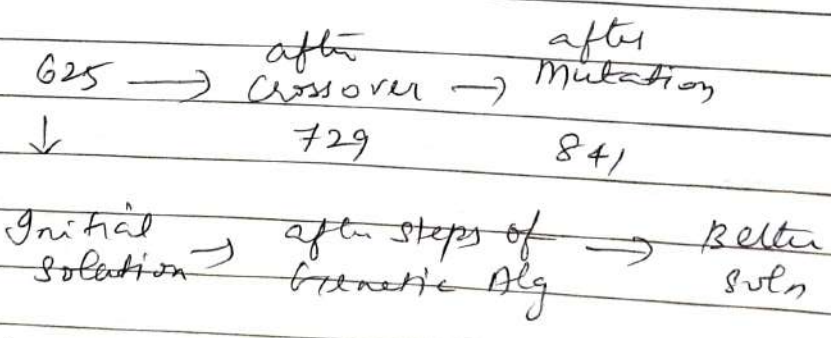 625 → after Crossover → after Mutation
↓ 729 841
Initial Solution → after steps of Genetic Alg → Better Soln